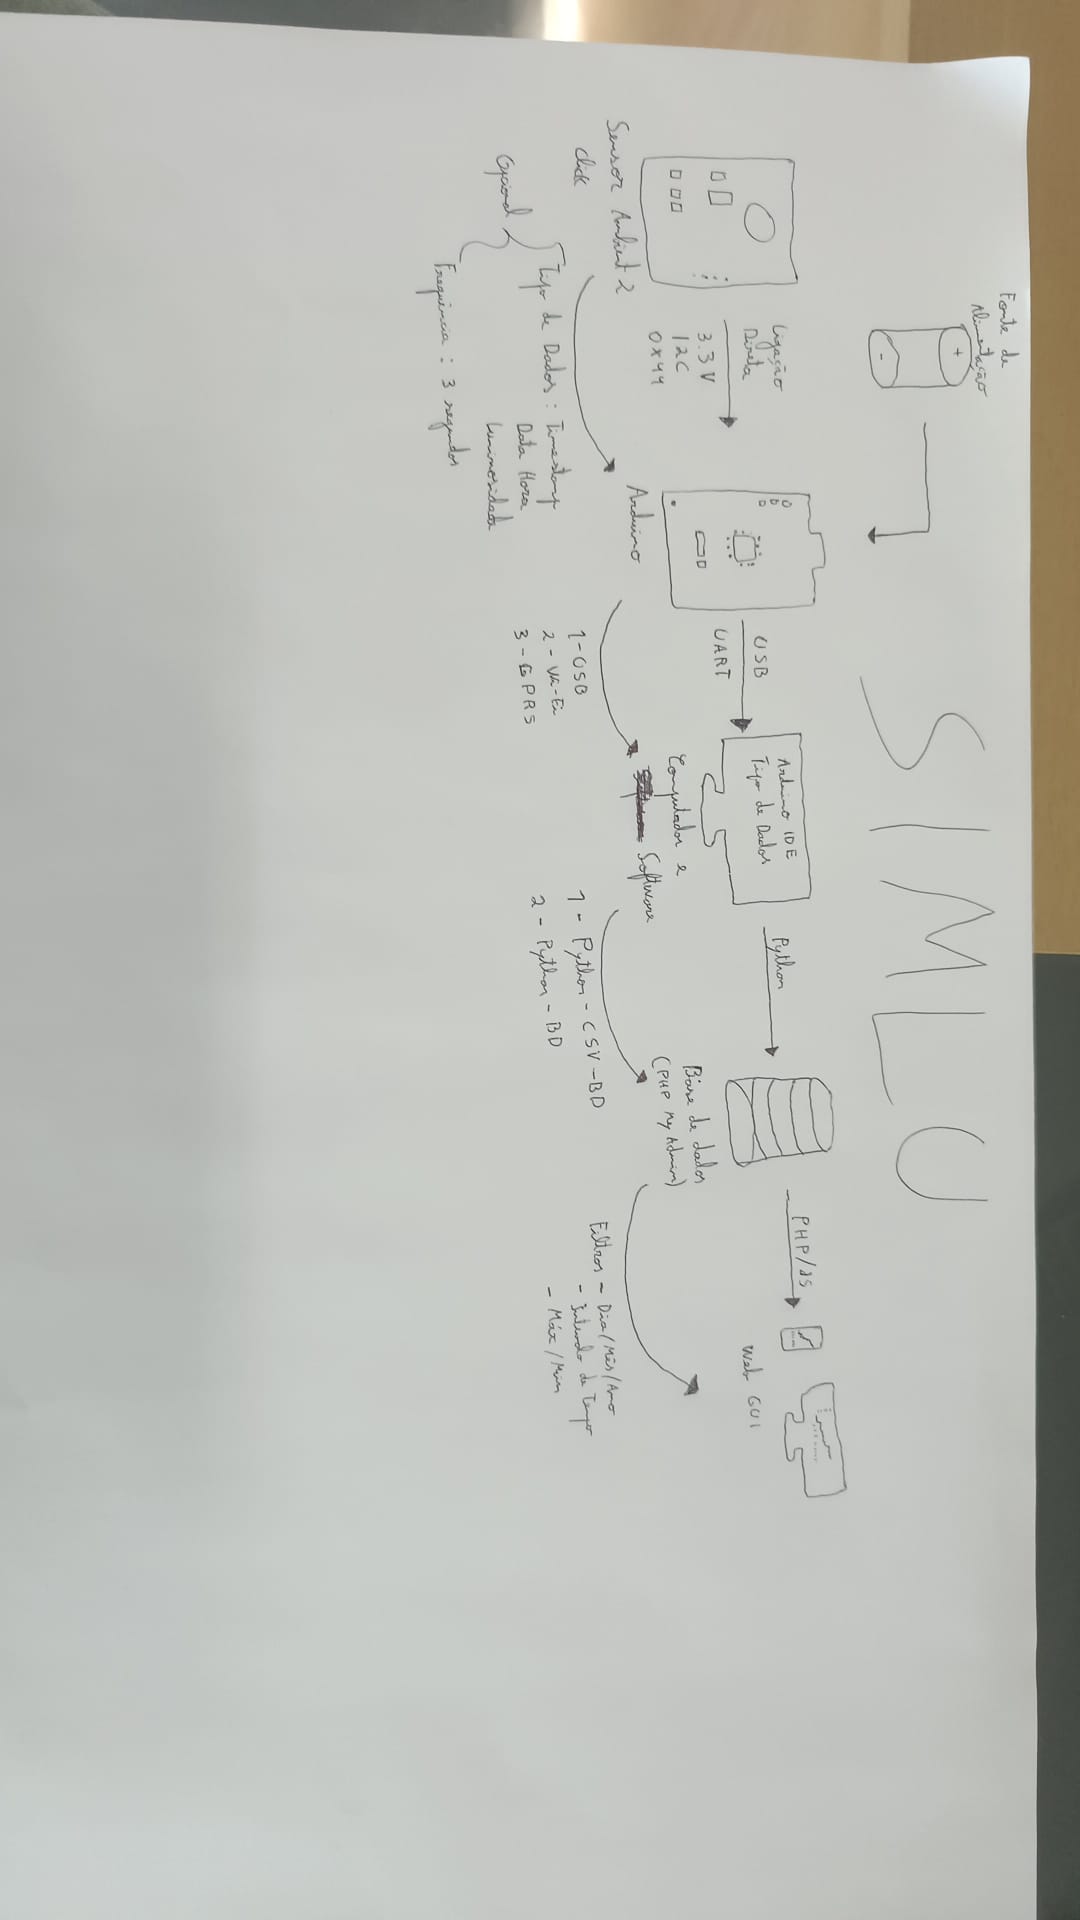 SIMLU
Fonte de
Alimentação
+
-
Ligação
Direta
3.3 V
I2C
0x44
Sensor Ambient 2
Click
Arduino
USB
UART
Arduino IDE
Tipo de Dados
Computador e
Software
Python
Base de dados
(PHP My Admin)
PHP/JS
Web GUI
Opcional
Tipo de Dados : Timestamp
Data Hora
Luminosidade
Frequência : 3 segundos
1 - USB
2 - Wi-Fi
3 - GPRS
1 - Python - CSV - BD
2 - Python - BD
Filtros - Dia/Mês/Ano
- Intervalo de Tempo
- Máx/Min